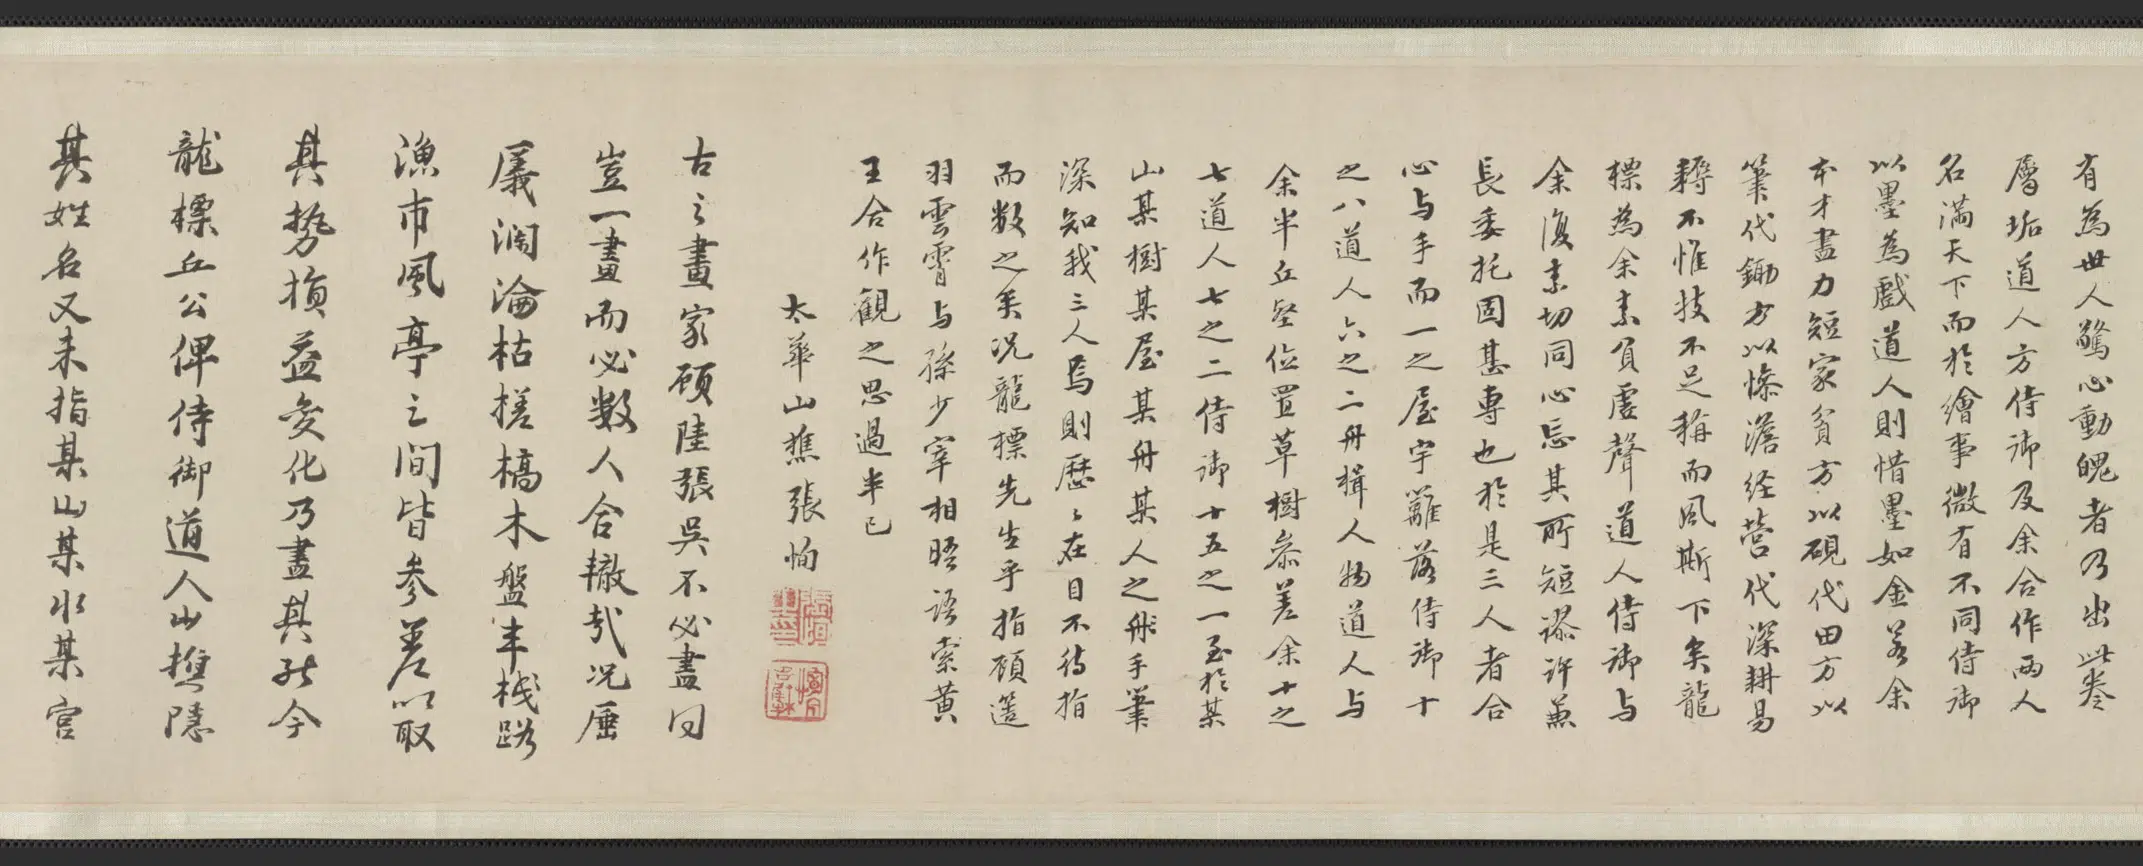 有為世人驚心動魄者乃出此卷
層垢道人方侍御及余合作兩人
名滿天下而於繪事微有不同侍御
以墨為戲道人則惜墨如金若余
本才盡力短家貧方以硯代田方以
筆代鋤方以慘澹经营代深耕易
耨不惟技不足稱而風斯下矣龍
標為余素負虛聲道人侍御与
余復素切同心忘其所短謬许兼
長委托固甚專也於是三人者合
心与手而一之屋宇籬落侍御十
之八道人六之二舟楫人物道人与
余半丘壑位置草樹叅差余十之
七道人七之二侍御十五之一至於某
山某樹某屋某舟某人之飛手筆
深知我三人焉則歷〻在目不待指
而数之矣况龍標先生乎指顧遥
羽雲霄与孫少宰相晤语索黄
王合作觀之思過半已
太華山樵張恂
古之畫家顾陸張吳不必盡同
豈一畫而必数人合轍哉况厜
㕒瀾淪枯槎槁木盤車栈路
漁市風亭之间皆参差以取
其势損益变化乃盡其能今
龍標丘公俾侍御道人山樵隱
其姓名又未指某山某水某宫